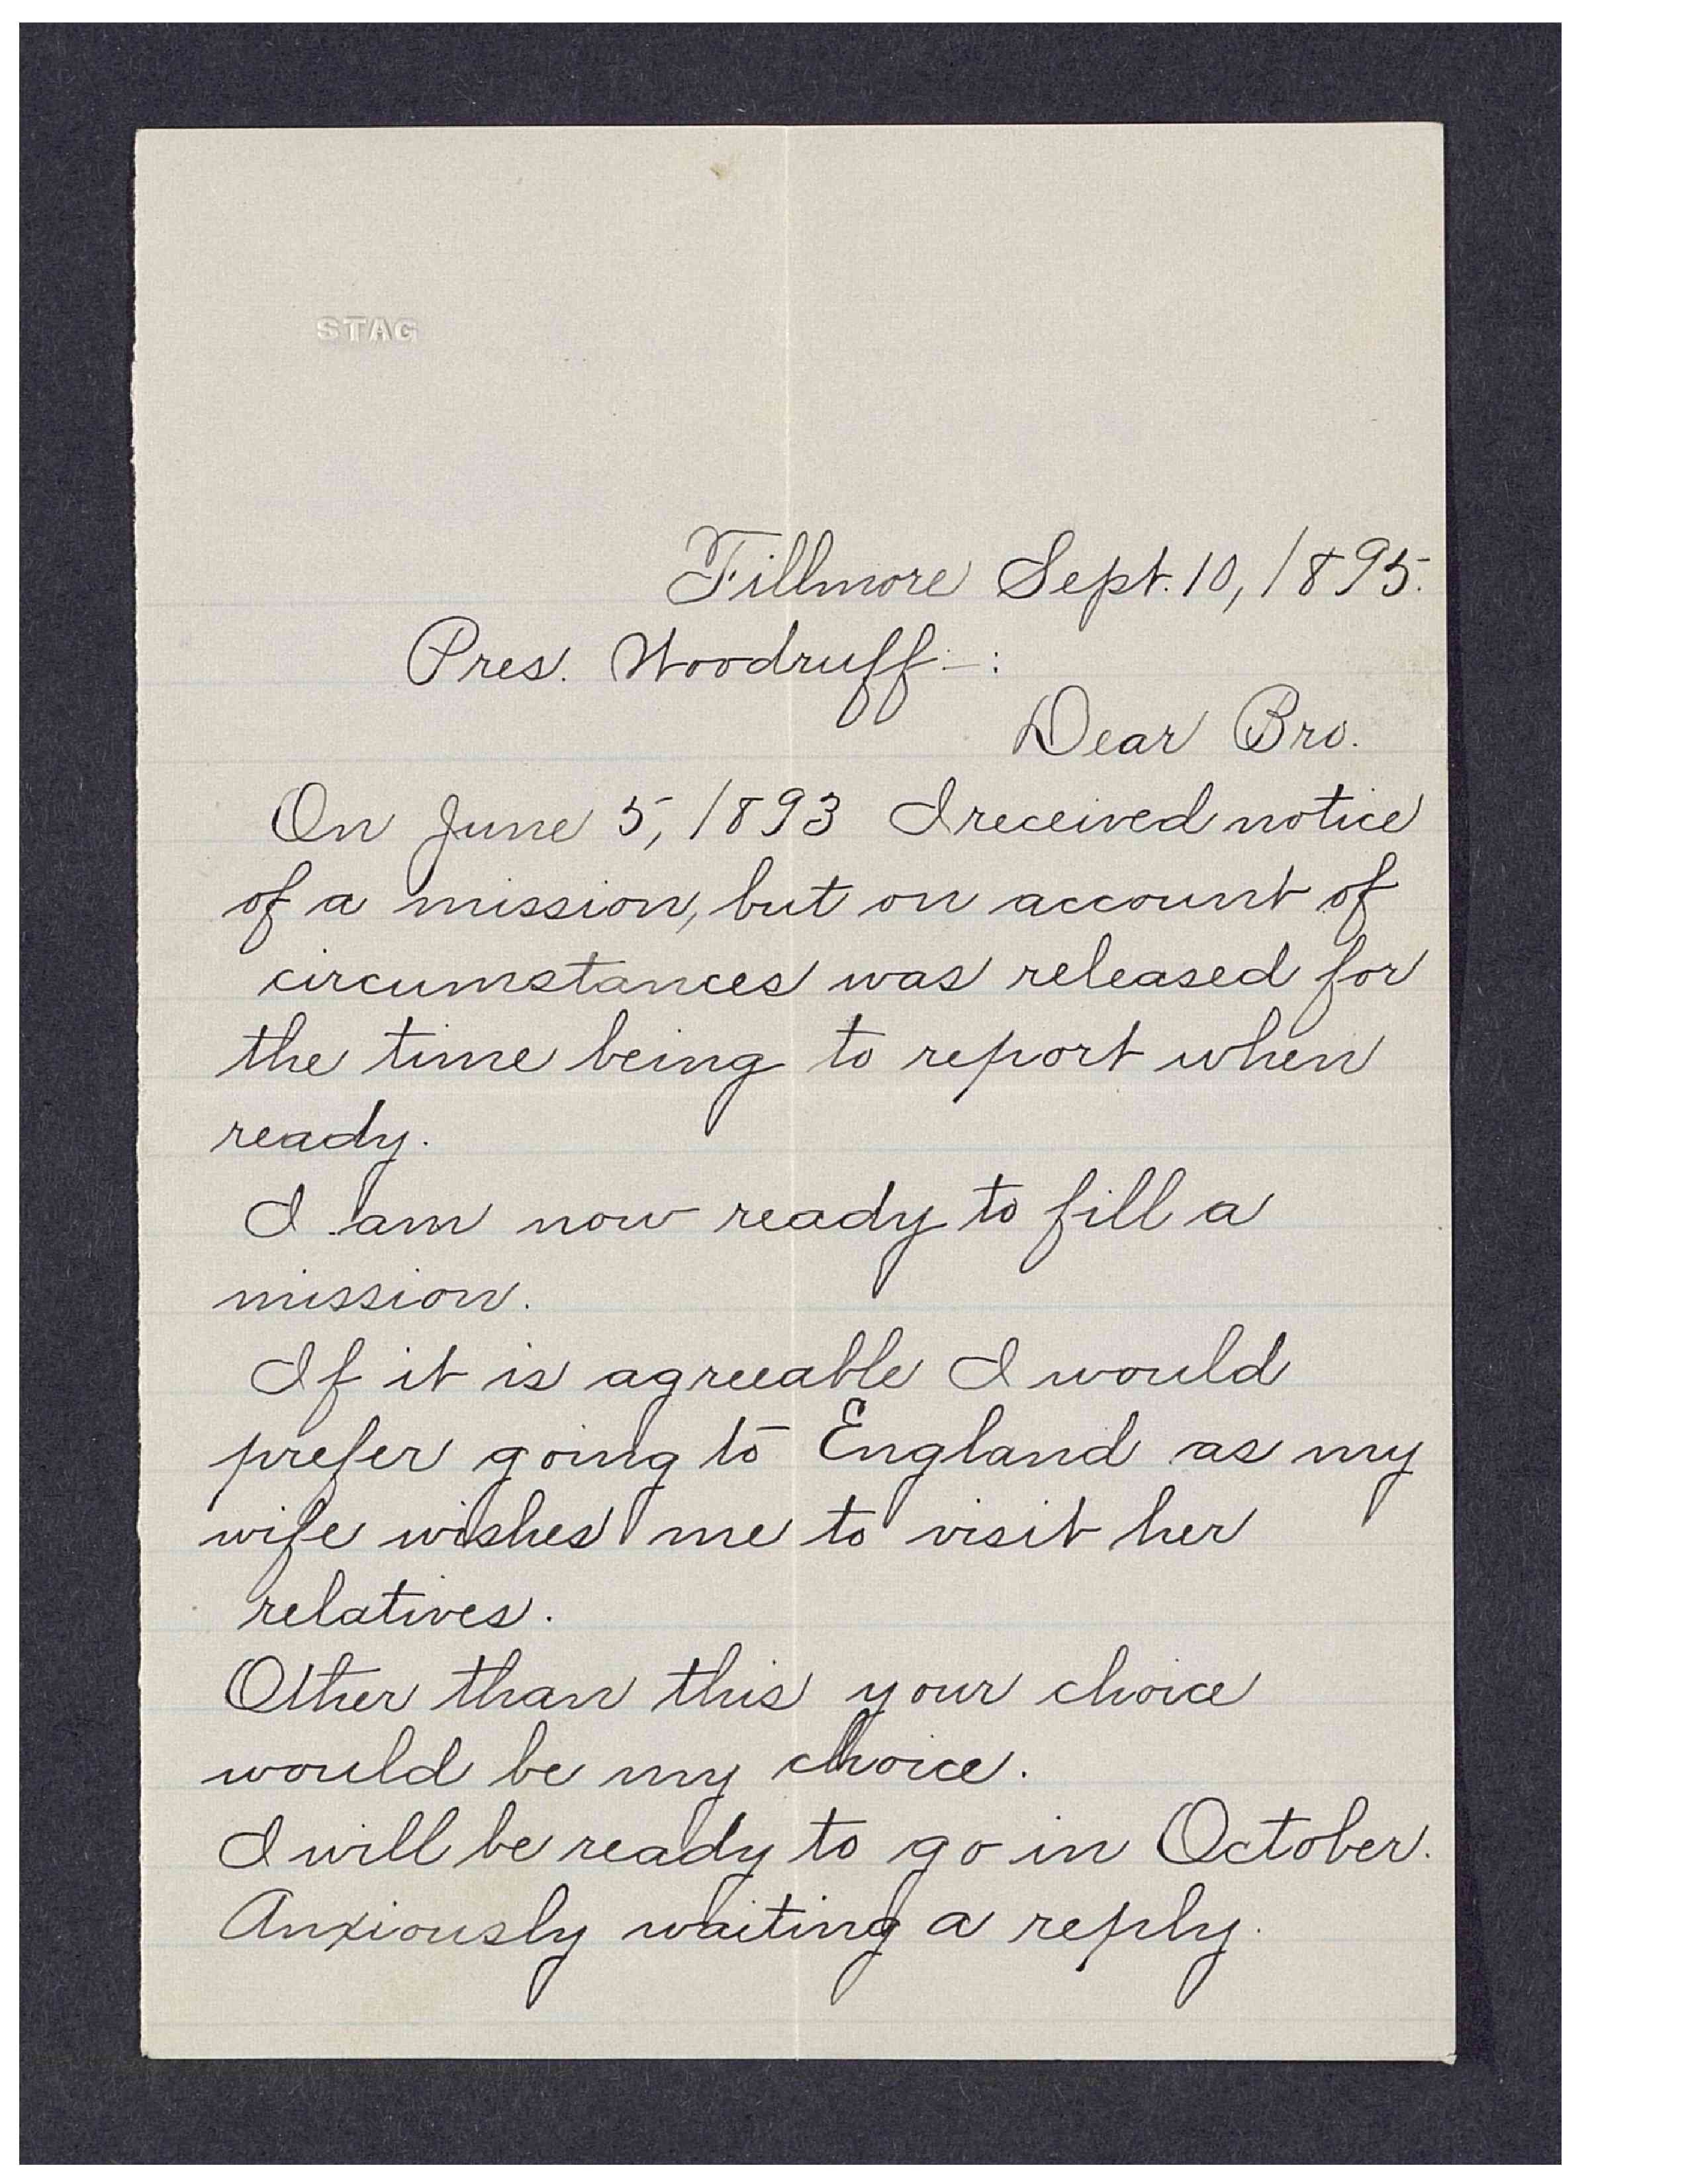 STAG
Fillmore Sept. 10, 1895.
Pres. Woodruff-:
Dear Bro.
On June 5, 1893 I received notice
of a mission, but on account of
circumstances was released for
the time being to report when
ready.
I am now ready to fill a
mission.
If it is agreeable I would
prefer going to England as my
wife wishes me to visit her
relatives.
Other than this your choice
would be my choice.
I will be ready to go in October.
Anxiously waiting a reply.